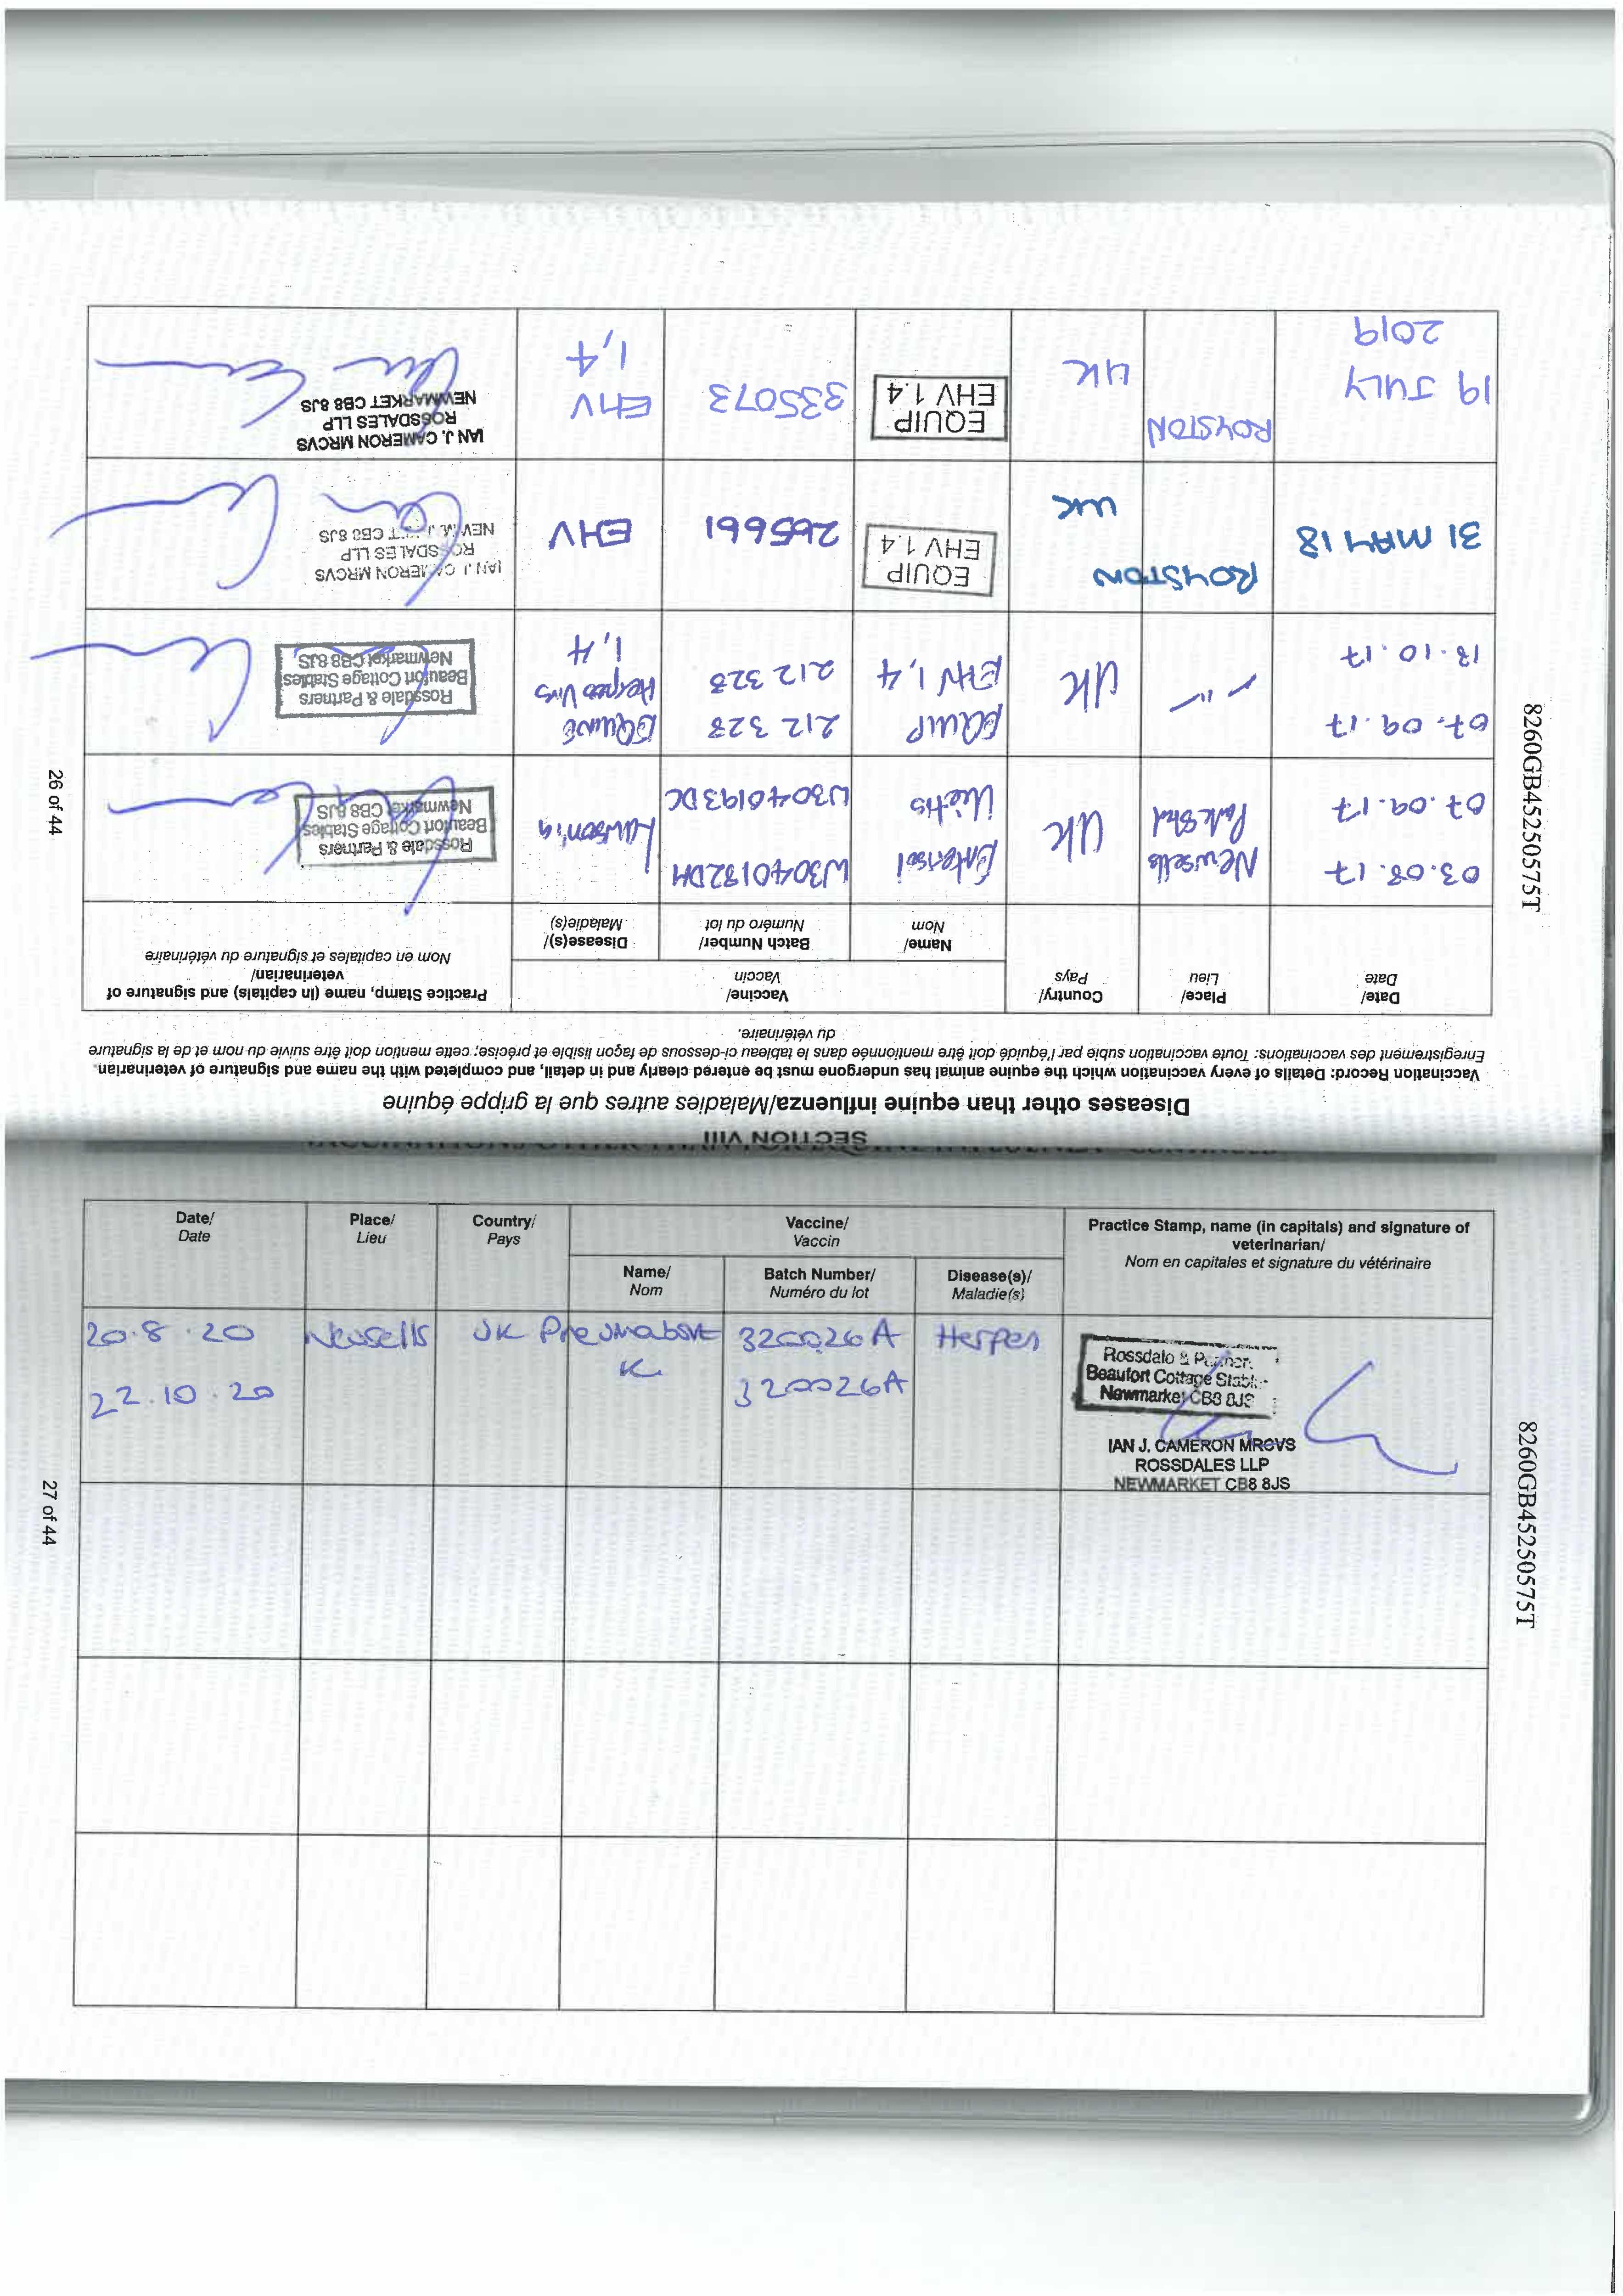 SECTION VIII
Diseases other than equine influenza/Maladies autres que la grippe équine
Vaccination Record: Details of every vaccination which the equine animal has undergone must be entered clearly and in detail, and completed with the name and signature of veterinarian
Enregistrement des vaccinations: Toute vaccination subie par l'équidé doit être mentionnée dans le tableau ci-dessous de façon lisible et précise; cette mention doit être suivie du nom et de la signature
du vétérinaire.
Date/
Date
Place/
Lieu
Country/
Pays
Vaccine/
Vaccin
Name/
Nom
Batch Number/
Numéro du lot
Disease(s)/
Maladie(s)
Practice Stamp, name (in capitals) and signature of
veterinarian/
Nom en capitales et signature du vétérinaire
03.08.17
07.09.17
Newsells
Park Stud
UK
Enterisol
Ileitis
W3040182DH
W3040193DC
Lawsonia
Rossdale & Partners
Beaufort Cottage Stables
Newmarket CB8 8JS
07.09.17
18.10.17
UK
EQUIP
EHV 1,4
212 328
212 328
EQUINE
Herpes Virus
1,4
Rossdale & Partners
Beaufort Cottage Stables
Newmarket CB8 8JS
31 MAY 18
ROYSTON
UK
EQUIP
EHV 1.4
265661
EHV
IAN J. CAMERON MRCVS
ROSSDALES LLP
CB8 8JS
19 JULY
2019
ROYSTON
UK
EQUIP
EHV 1.4
335073
EHV
1,4
IAN J. CAMERON MRCVS
ROSSDALES LLP
NEWMARKET CB8 8JS
26 of 44
8260GB45250575T
Date/
Date
Place/
Lieu
Country/
Pays
Vaccine/
Vaccin
Name/
Nom
Batch Number/
Numéro du lot
Disease(s)/
Maladie(s)
Practice Stamp, name (in capitals) and signature of
veterinarian/
Nom en capitales et signature du vétérinaire
20.8.20
22.10.20
Newsells
UK
Pneumabort
K
320026A
320026A
Herpes
Beaufort Cottage
Newmarket CB8 8JS
IAN J. CAMERON MRCVS
ROSSDALES LLP
NEWMARKET CB8 8JS
27 of 44
8260GB45250575T